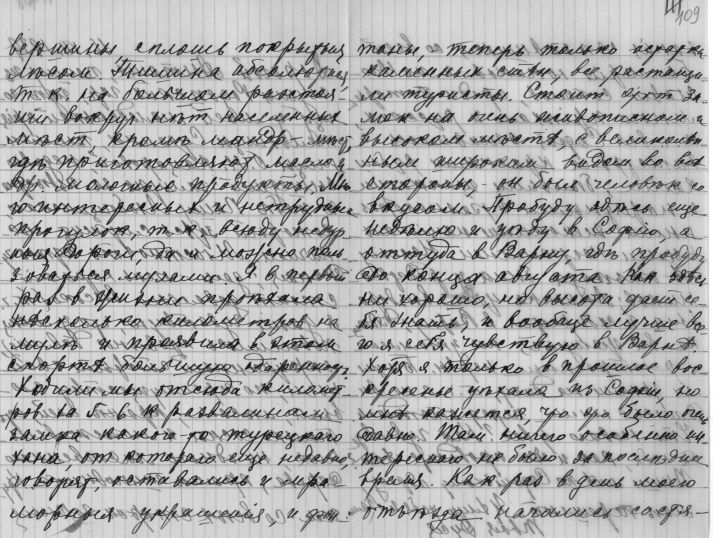 409
вершины сплошь покрытыя
лѣсом. Тишина абсолютная,
т. к. на большом разстоя-
нiи вокруг нѣт населенных
мѣст, кромѣ мандр - мѣст,
гдѣ приготовляют масло и
др. молочные продукты. Мно
го интересных и нетрудных
прогулок, т. к. всюду недур
ныя дороги, да и можно поль
зоваться мулами. Я в первый
раз в жизни проѣхала
нѣсколько километров на
мулѣ и проявила в этом
спортѣ большую одаренность.
Ходили мы отсюда километ
ров за 5-6 к развалинам
замка какого-то турецкого
хана, от которого еще недавно,
говорят, оставались и мра-
морныя украшенiя, и фон-
таны, теперь только остатки
каменных стѣн, все растащи-
ли туристы. Стоит этот за-
мок на очень живописном и
высоком мѣстѣ с великолѣп
ным широким видом во всѣ
стороны, - он был человѣк со
вкусом. Пробуду здѣсь еще
недѣлю и уѣду в Софiю, а
оттуда в Варну, гдѣ пробуду
до конца августа. Как здѣсь
ни хорошо, но высота дает се-
бя знать, и вообще лучше все
го я себя чувствую в Варнѣ.
Хотя я только в прошлое вос-
кресенье уѣхала из Софiи, но
мнѣ кажется, что это было очень
давно. Там ничего особенно ин
тереснаго не было за послѣднее
время. Как раз в день моего
отъѣзда начались состя-